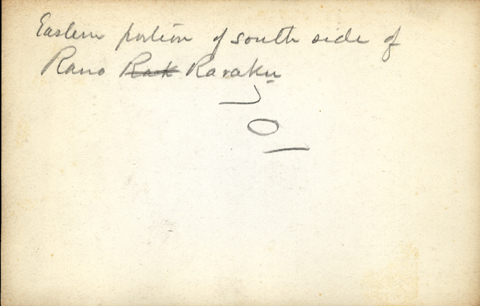 Eastern portion of south side of
Rano Rak Raraku